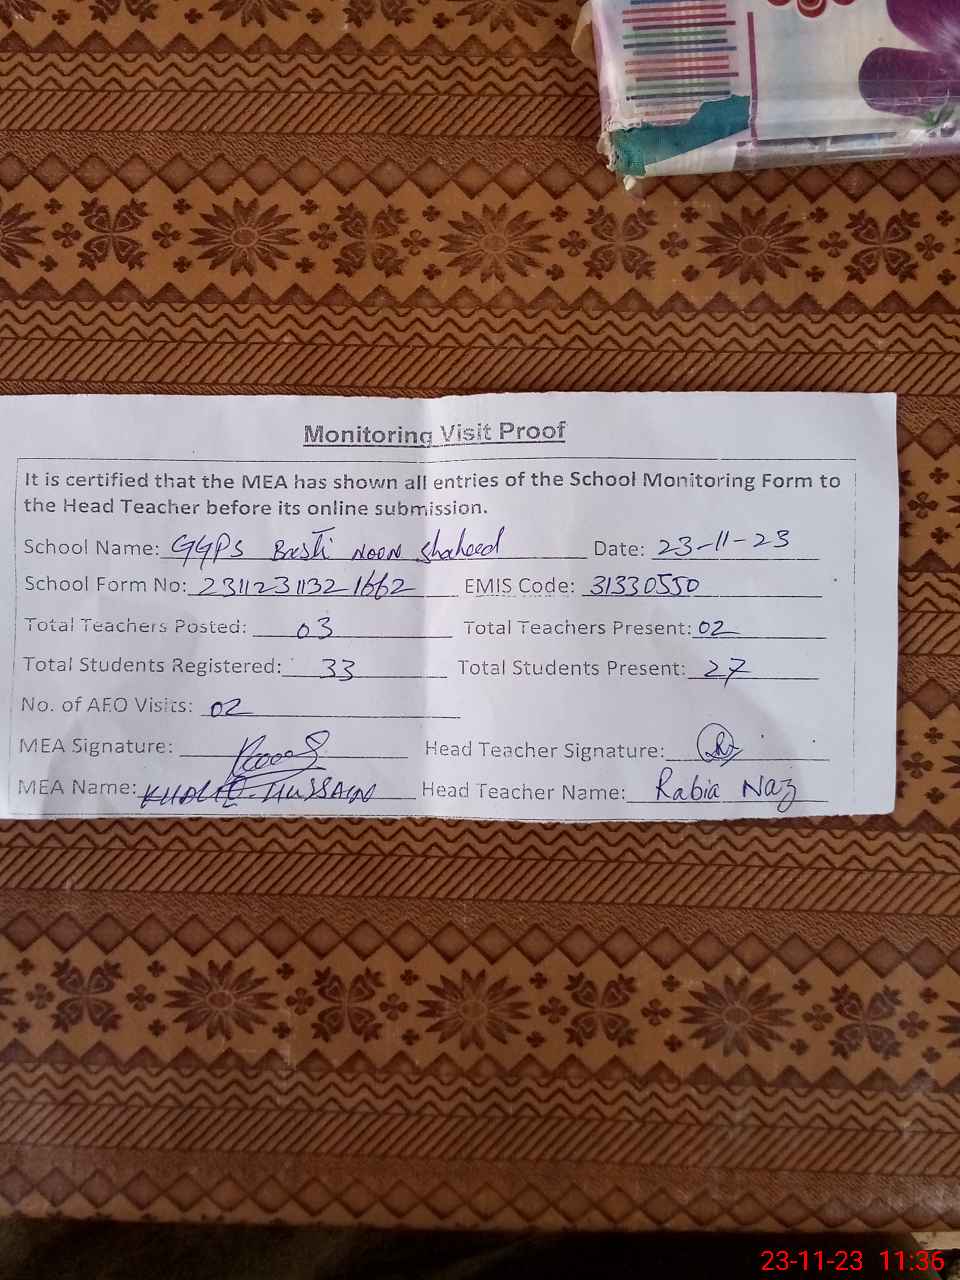 Monitoring Visit Proof
It is certified that the MEA has shown all entries of the School Monitoring Form to
the Head Teacher before its online submission.
School Name: GGPS Basti Noon Shaheed Date: 23-11-23
School Form No: 23112311321662 EMIS Code: 31330550
Total Teachers Posted: 03 Total Teachers Present: 02
Total Students Registered: 33 Total Students Present: 27
No. of AEO Visits: 02
MEA Signature: Head Teacher Signature:
MEA Name: KHALID HUSSAIN Head Teacher Name: Rabia Naz
23-11-23 11:36